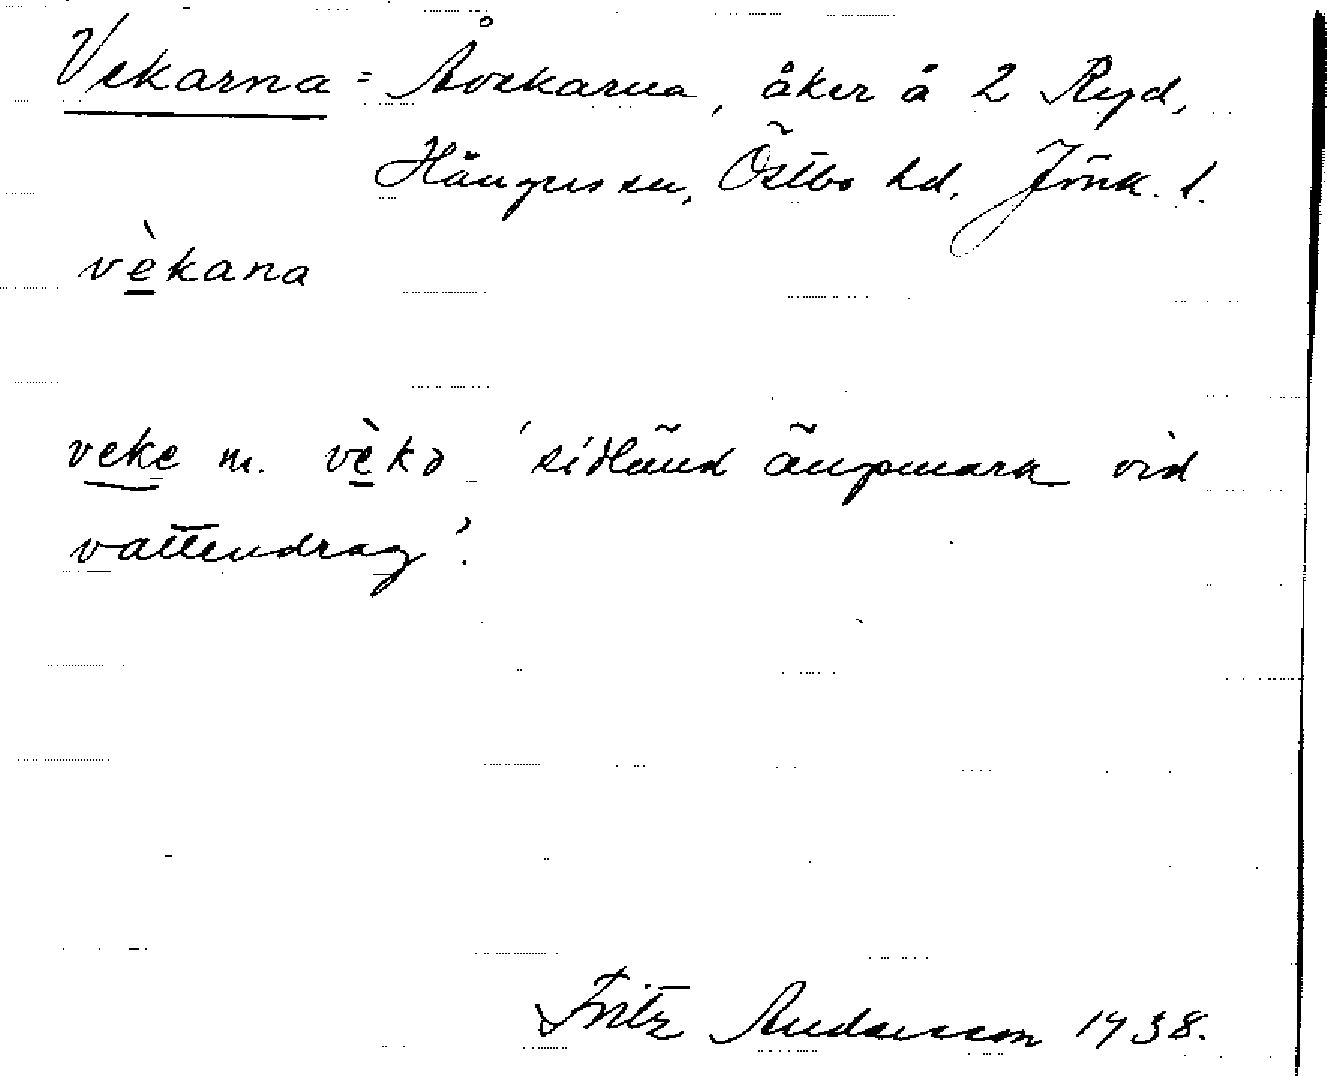 Vekarna = Åvekarna, åker å 2 Ryd,
Hångersen, Östbo hd. Jönk. l.
vèkana
veke m. vèkə 'sidländ ängsmark vid
vattendrag'.
Fritz Andersson 1938.